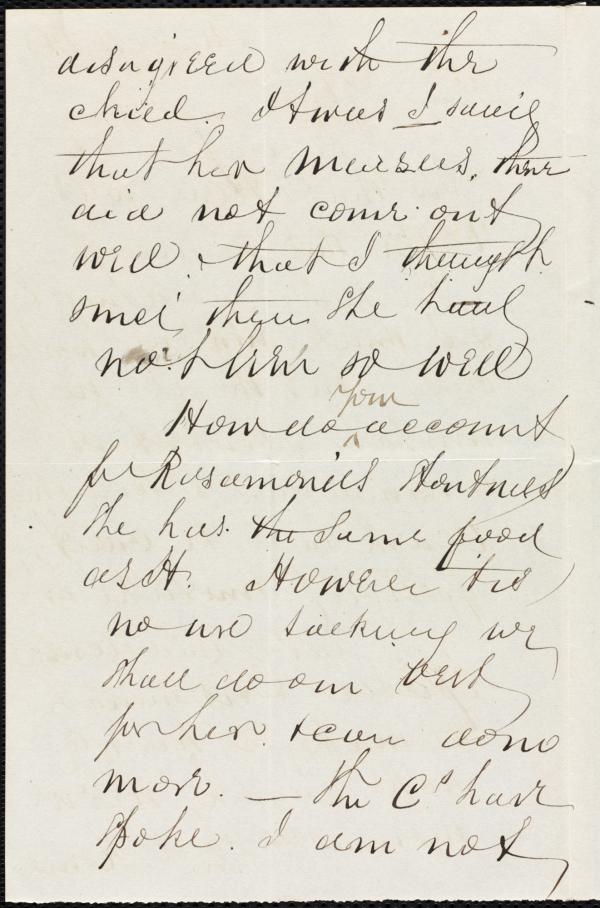 disagreed with the
child. It was I said
that her measles, there
did not come out
well, & that I thought
since then she had
not been so well
How do you account
for Rosamonds Stoutness
She has the same food
as H. However tis
no use talking we
shall do our best
for her & can do no
more. — The Cs have
spoke. I am not